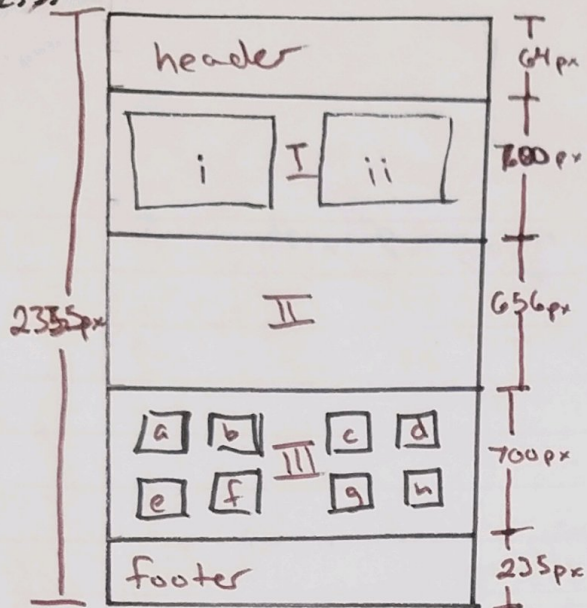 header
64px
i I ii
700px
2355px
II
656px
a b III c d
700px
e f g h
footer
235px